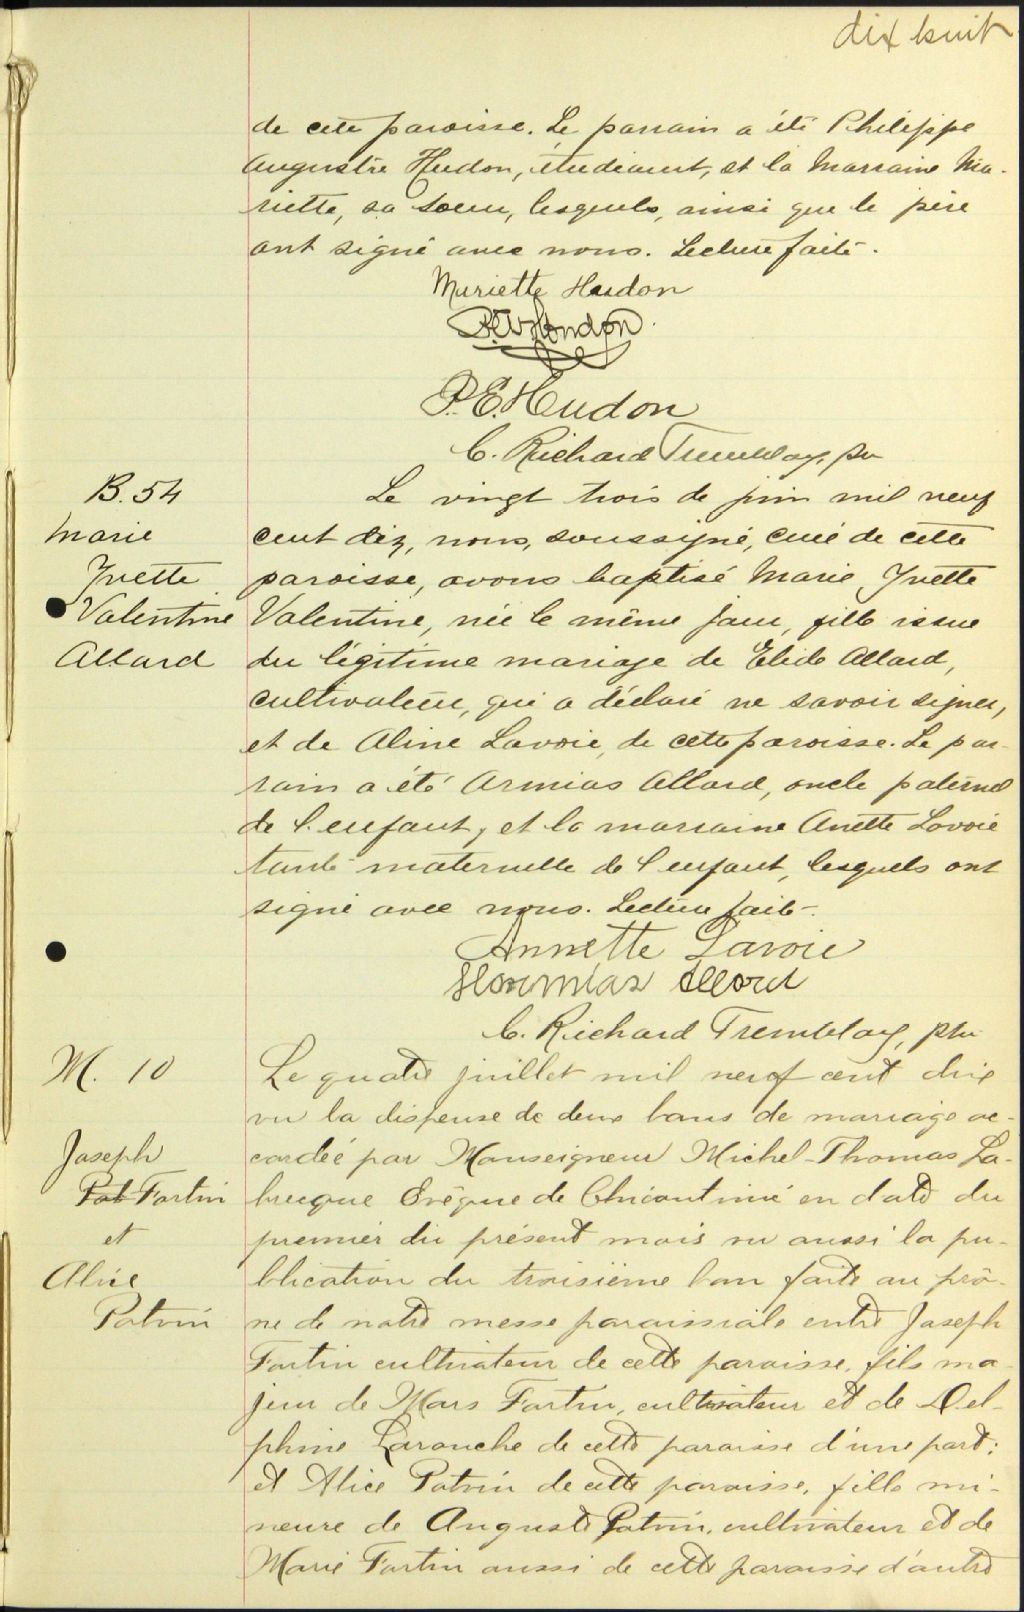 dix huit
de cette paroisse. Le parrain a été Philippe
Auguste Hudon, étudiant, et la Marraine Ma-
riette, sa soeur, lesquels, ainsi que le père
ont signé avec nous. Lecture faite.
Mariette Hudon
Hudon
P.E. Hudon
C. Richard Tremblay, ptre
B. 54
Marie
Yvette
Valentine
Allard
Le vingt trois de juin mil neuf
cent dix, nous, soussigné, curé de cette
paroisse, avons baptisé Marie Yvette
Valentine, née le même jour, fille issue
du légitime mariage de Elide Allard,
cultivateur, qui a déclaré ne savoir signer,
et de Aline Lavoie, de cette paroisse. Le par-
rain a été Armias Allard, oncle paternel
de l'enfant, et la marraine Anette Lavoie
tante maternelle de l'enfant, lesquels ont
signé avec nous. Lecture faite.
Annette Lavoie
Hormias Allard
C. Richard Tremblay, ptre
M. 10
Joseph
Pat Fortin
et
Alice
Potvin
Le quatre juillet mil neuf cent dix
vu la dispense de deux bans de mariage ac-
cordée par Monseigneur Michel-Thomas La-
brecque Evêque de Chicoutimi en date du
premier du présent mois vu aussi la pu-
blication du troisième ban faite au prô-
ne de notre messe paroissiale entre Joseph
Fortin cultivateur de cette paroisse, fils ma-
jeur de Mars Fortin, cultivateur et de Del-
phine Larouche de cette paroisse d'une part;
et Alice Potvin de cette paroisse, fille mi-
neure de Auguste Potvin, cultivateur et de
Marie Fortin aussi de cette paroisse d'autre